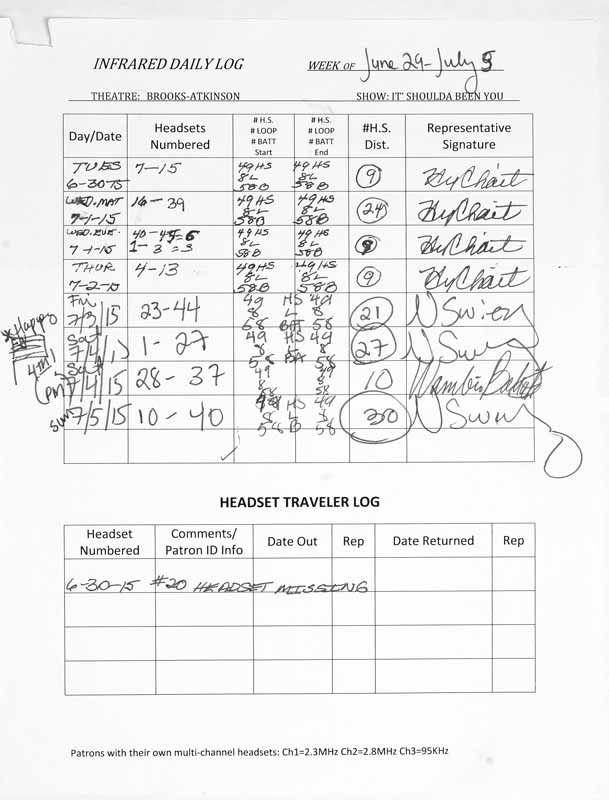 INFRARED DAILY LOG WEEK OF June 29-July 5
THEATRE: BROOKS-ATKINSON SHOW: IT' SHOULDA BEEN YOU
Day/Date Headsets Numbered # H.S. # LOOP # BATT Start # H.S. # LOOP # BATT End #H.S. Dist. Representative Signature
TUES 6-30-15 7-15 49 HS 8L 58B 49 HS 8L 58B 9
WED. MAT 7-1-15 16-39 49 HS 8L 58B 49 HS 8L 58B 24
WED. EVE. 7-1-15 40-45=6 1-3=3 49 HS 8L 58B 49 HS 8L 58B 9
THUR 7-2-15 4-13 49HS 8L 58B 49HS 8L 58B 9
Fri 7/3/15 23-44 49 HS 49 8 L 8 58 BA 58 21
*Happy 4th!
Sat 7/4/15 1-27 49 HS 49 8 L 8 58 BA 58 27
Sat (pm) 7/4/15 28-37 49 8 58 49 8 58 10
Sun 7/5/15 10-40 49 HS 49 8 L 8 58 B 58 30
HEADSET TRAVELER LOG
Headset Numbered Comments/ Patron ID Info Date Out Rep Date Returned Rep
6-30-15 #20 HEADSET MISSING
Patrons with their own multi-channel headsets: Ch1=2.3MHz Ch2=2.8MHz Ch3=95KHz